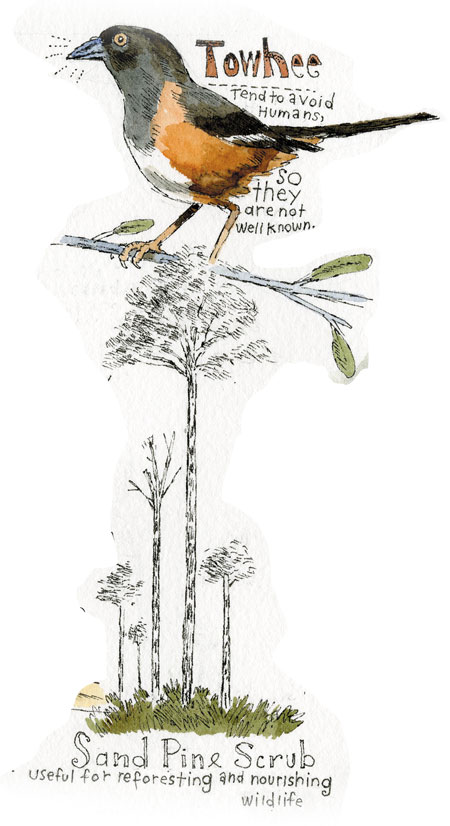 Towhee
Tend to avoid
Humans,
so
they
are not
well known.
Sand Pine Scrub
useful for reforesting and nourishing
wildlife